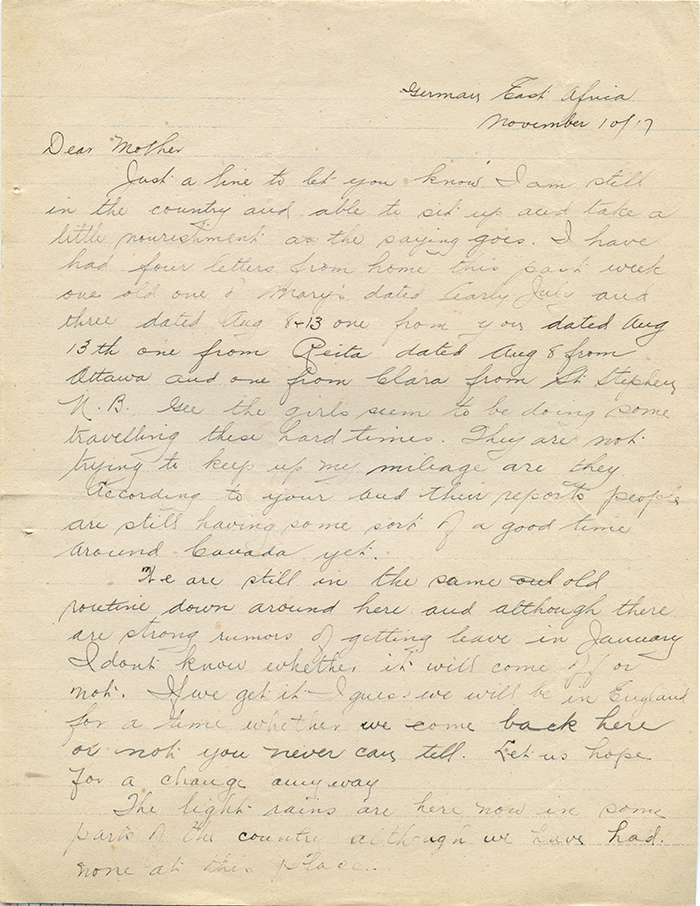 German East Africa
November 10/17
Dear Mother
Just a line to let you know I am still
in the country and able to sit up and take a
little nourishment as the saying goes. I have
had four letters from home this past week
one old one of Mary's dated early July and
three dated Aug 8+13 one from you dated Aug
13th one from Reita dated Aug 8 from
Ottawa and one from Clara from St Stephen
N.B. Gee the girls seem to be doing some
travelling these hard times. They are not
trying to keep up my mileage are they
According to your and their reports people
are still having some sort of a good time
around Canada yet.
We are still in the same old
routine down around here and although there
are strong rumors of getting leave in January
I dont know whether it will come off or
not. If we get it I guess we will be in England
for a time whether we come back here
or not you never can tell. Let us hope
for a change anyway
The light rains are here now in some
parts of the country although we have had
none at this place.